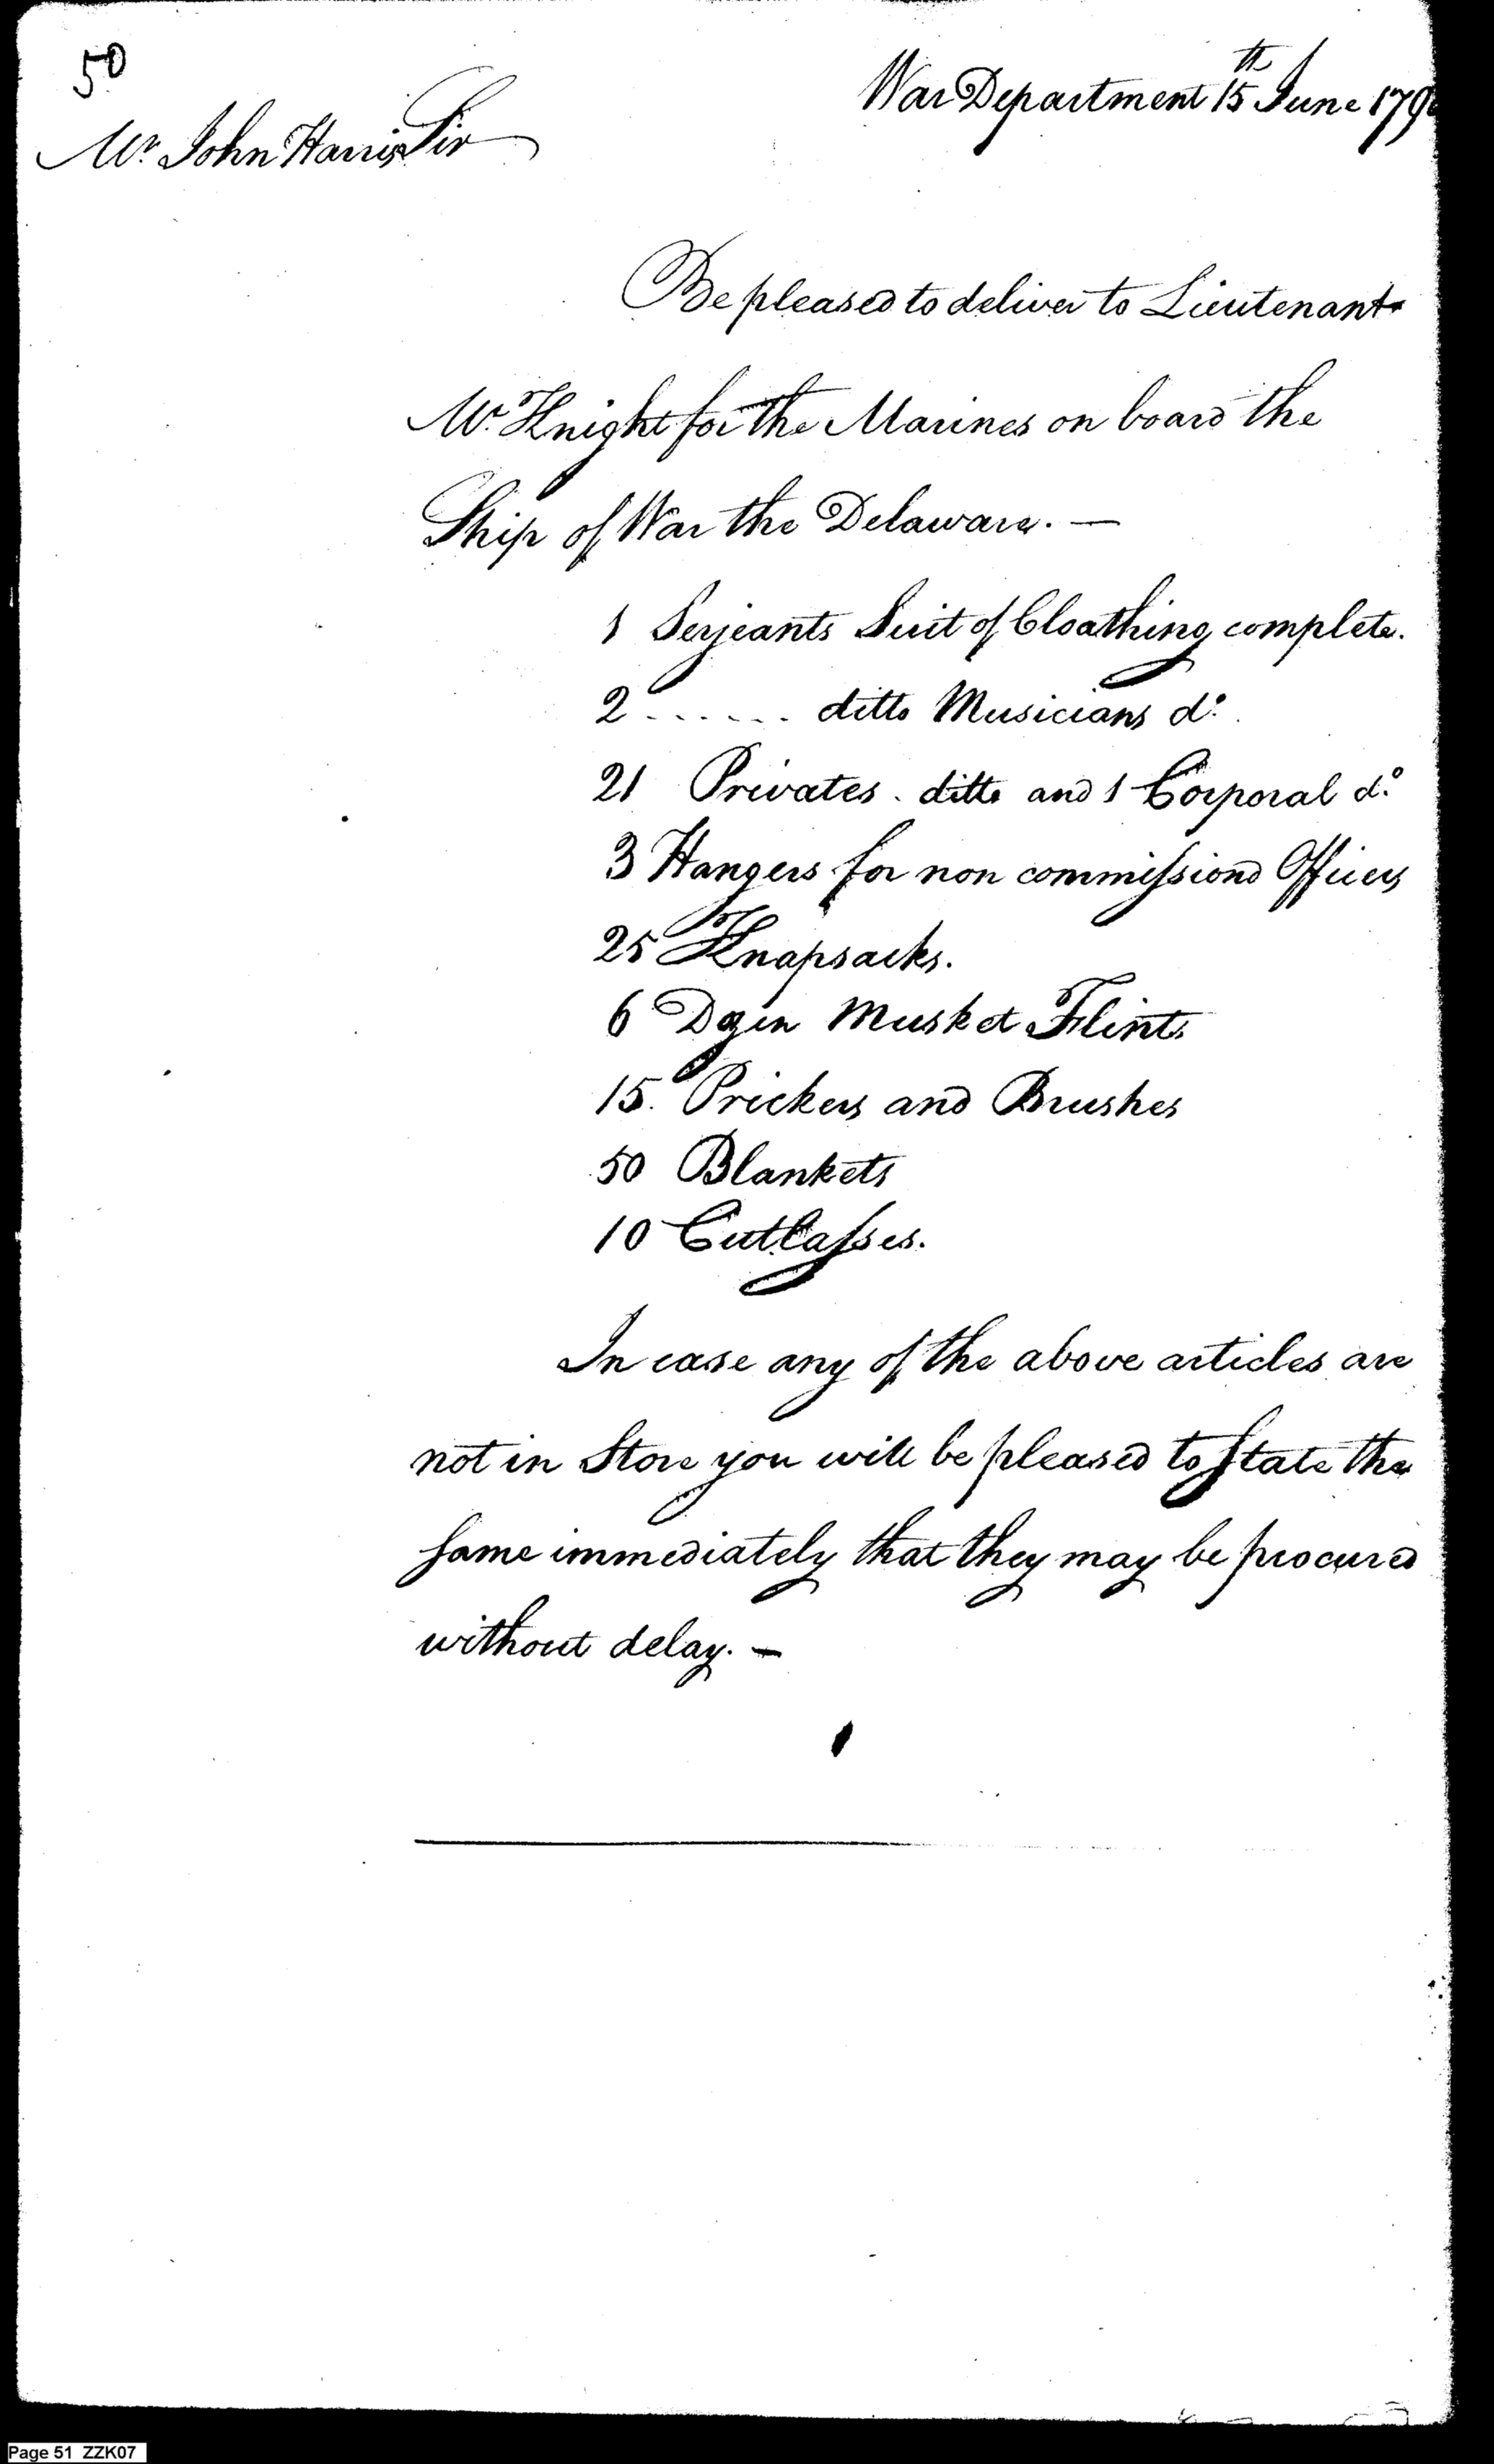 50
War Department 15th June 179
Mr. John Harris Sir
Be pleased to deliver to Lieutenant
Mc. Knight for the Marines on board the
Ship of War the Delaware. —
1 Serjeants Suit of Cloathing complete.
2 ...... ditto Musicians do.
21 Privates. ditto and 1 Corporal do.
3 Hangers for non commissiond Officers
25 Knapsacks.
6 Dozen Musket Flints
15. Prickers and Brushes
50 Blankets
10 Cutlasses.
In case any of the above articles are
not in Store you will be pleased to State the
same immediately that they may be procured
without delay. —
Page 51 ZZK07